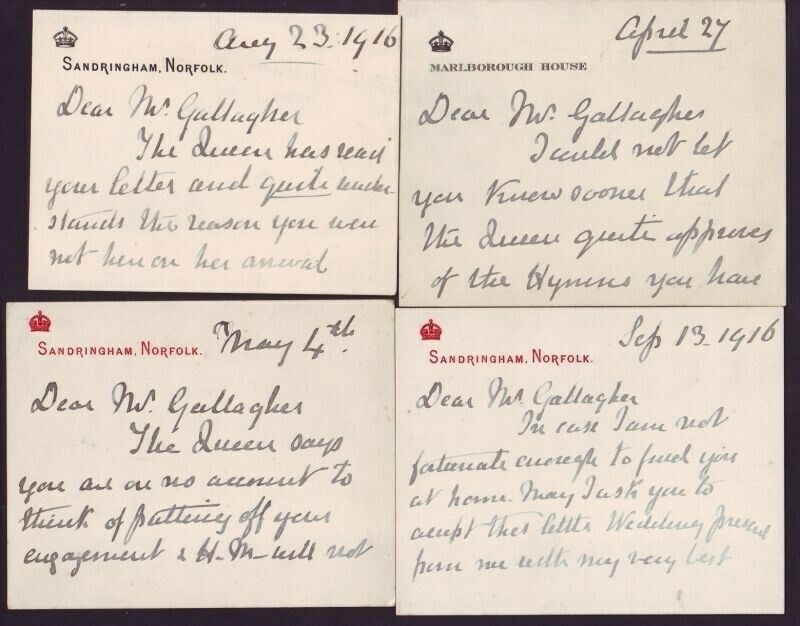 Aug 23. 1916
SANDRINGHAM, NORFOLK.
Dear Mr. Gallagher
The Queen has read
your letter and quite under-
stands the reason you were
not here on her arrival
April 27
MARLBOROUGH HOUSE
Dear Mr. Gallagher
I could not let
you know sooner that
the Queen quite approves
of the Hymns you have
May 4th.
SANDRINGHAM, NORFOLK.
Dear Mr. Gallagher
The Queen says
you are on no account to
think of putting off your
engagement & H.M. will not
Sep 13. 1916
SANDRINGHAM, NORFOLK.
Dear Mr. Gallagher
In case I am not
fortunate enough to find you
at home. May I ask you to
accept this little Wedding present
from me with my very best